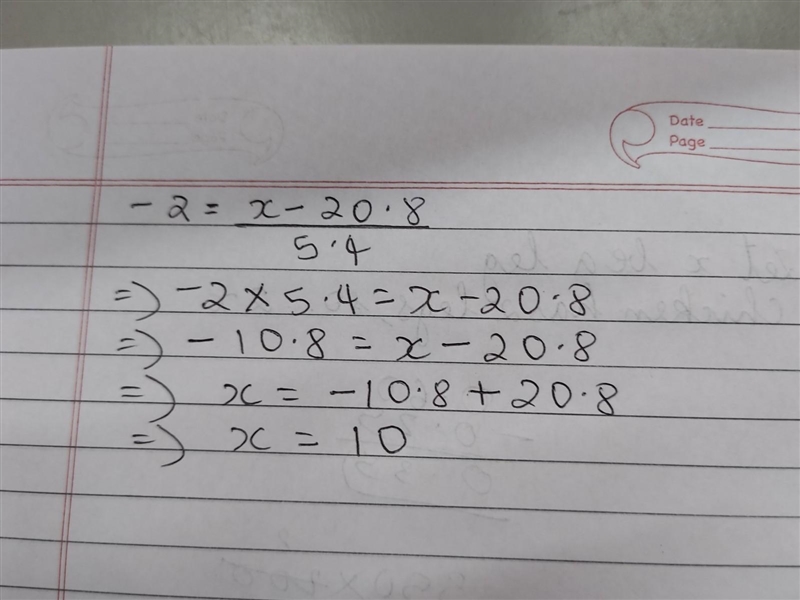 Date
Page
- 2 = x - 20.8
5.4
=) -2 × 5.4 = x - 20.8
=) - 10.8 = x - 20.8
=) x = -10.8 + 20.8
=) x = 10